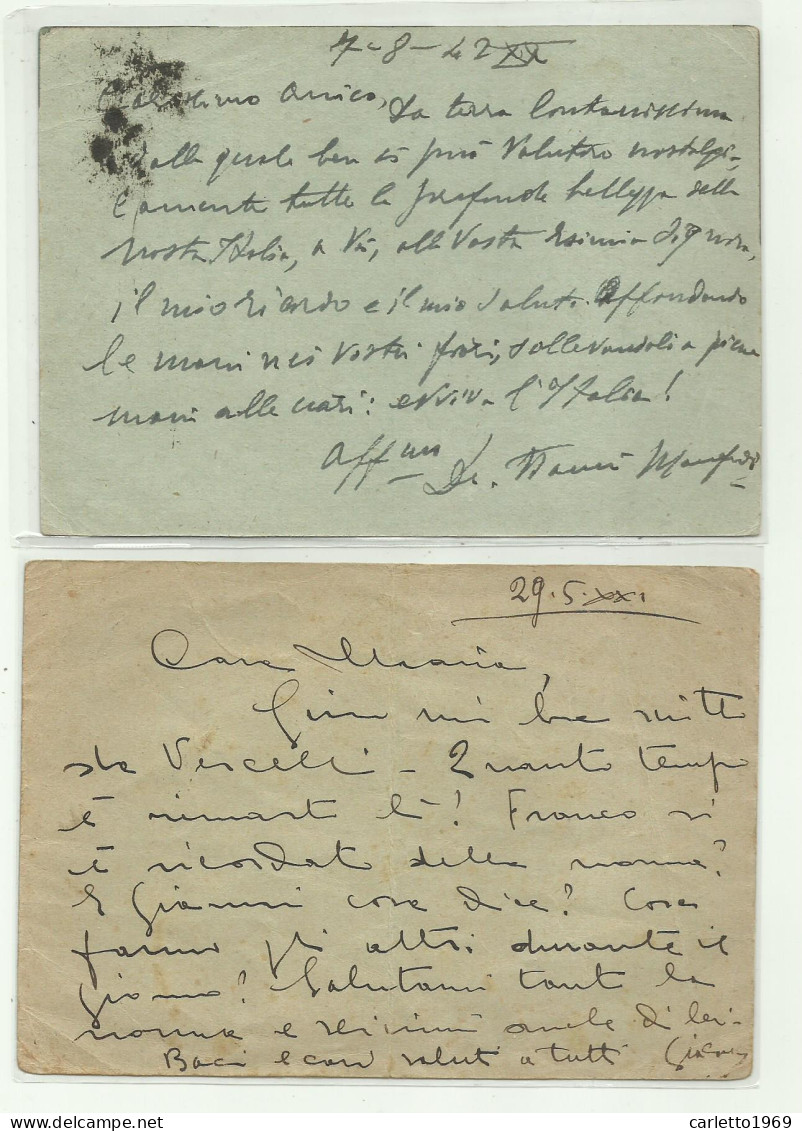 7-8-42 XX
Carissimo Amico, La terra lontanissima
dalla quale ben si può valutare nostalgi-
camente tutte le profonde bellezze della
nostra Italia, a Voi, alla Vostra Esimia Signora,
il mio ricordo e il mio saluto. Affondando
le mani nei vostri fiori, sollevandoli a piene
mani alle nari: evviva l'Italia!
Aff.mo
Dr.
29.5.XXI
Cara Maria,
Gino mi ha scritto
da Vercelli - Quanto tempo
è rimasto lì! Franco si
è ricordato della nonna?
E Gianni cosa dice? Cosa
fanno gli altri durante il
giorno? Salutami tanto la
nonna e scrivimi anche di lei -
Baci e cari saluti a tutti
carletto1969